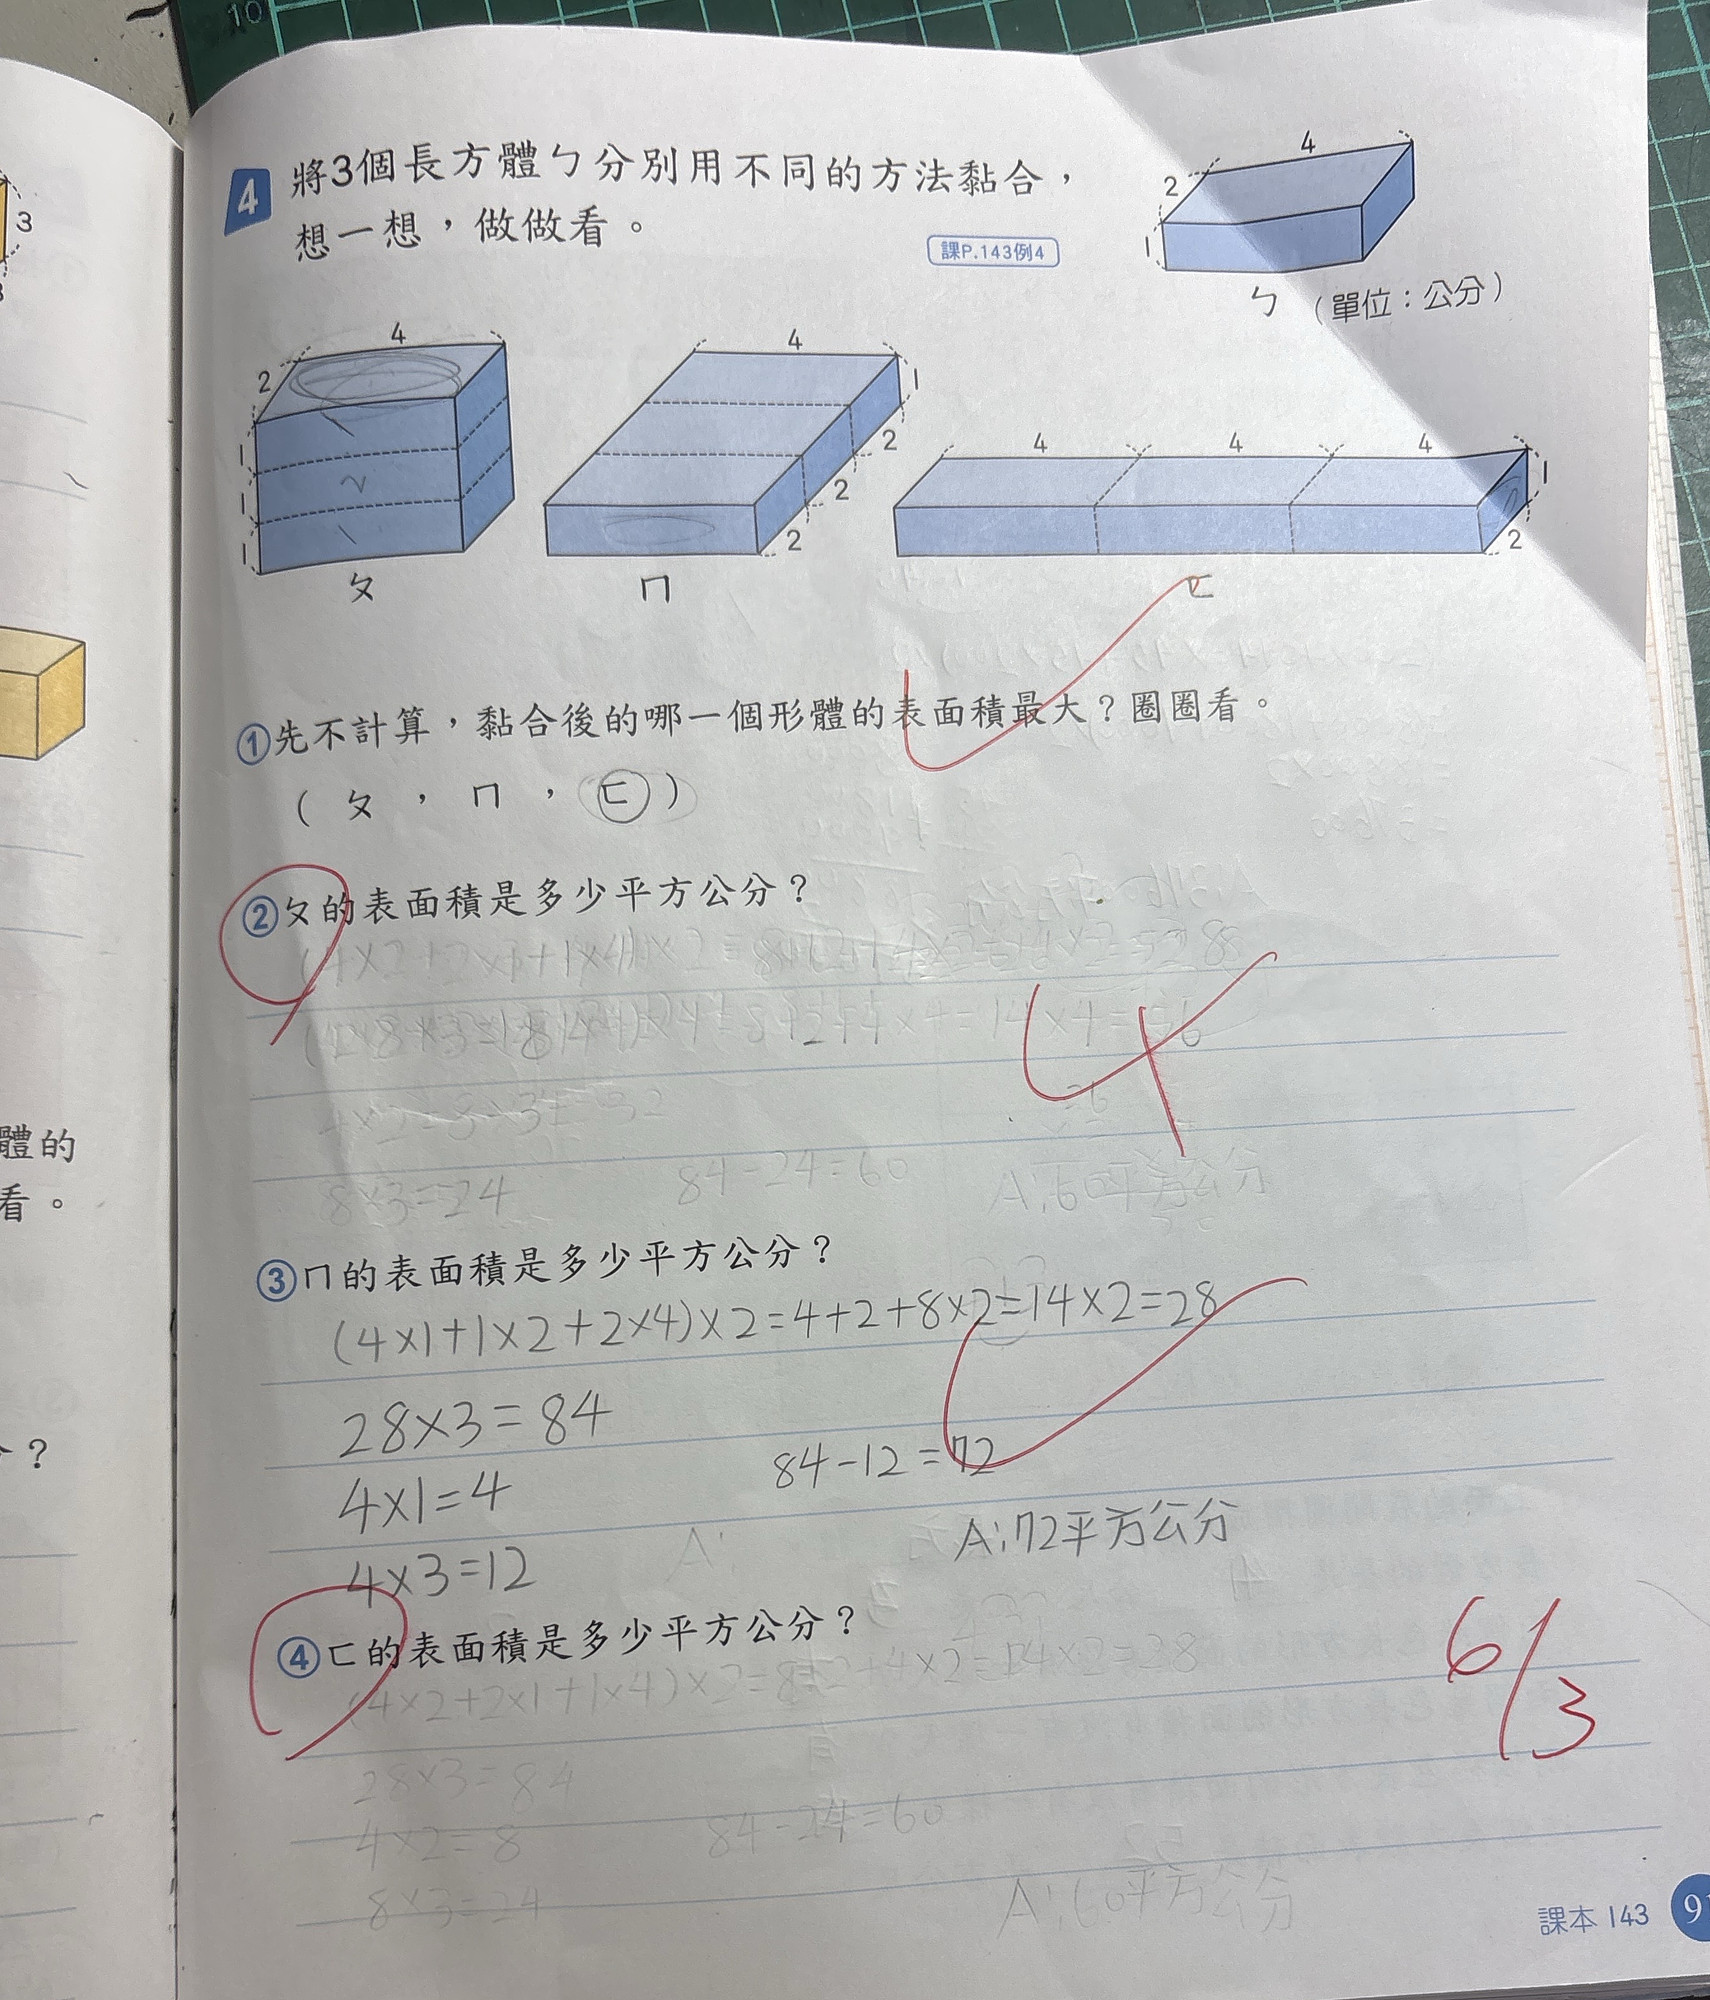 10
4 將3個長方體ㄅ分別用不同的方法黏合，
想一想，做做看。
課P.143例4
4
2
1
ㄅ（單位：公分）
3
4
2
1
1
1
ㄆ
4
1
2
2
2
ㄇ
4
4
4
1
2
ㄈ
①先不計算，黏合後的哪一個形體的表面積最大？圈圈看。
（ ㄆ ， ㄇ ， ㄈ ）
②ㄆ的表面積是多少平方公分？
8×3=24
84-24=60
A:60平方公分
③ㄇ的表面積是多少平方公分？
(4×1+1×2+2×4)×2=4+2+8×2=14×2=28
28×3=84
84-12=72
4×1=4
A:72平方公分
4×3=12
④ㄈ的表面積是多少平方公分？
(4×2+2×1+1×4)×2=8+2+4×2=14×2=28
28×3=84
4×2=8
84-24=60
8×3=24
A:60平方公分
6/3
體的
看。
？
課本 143